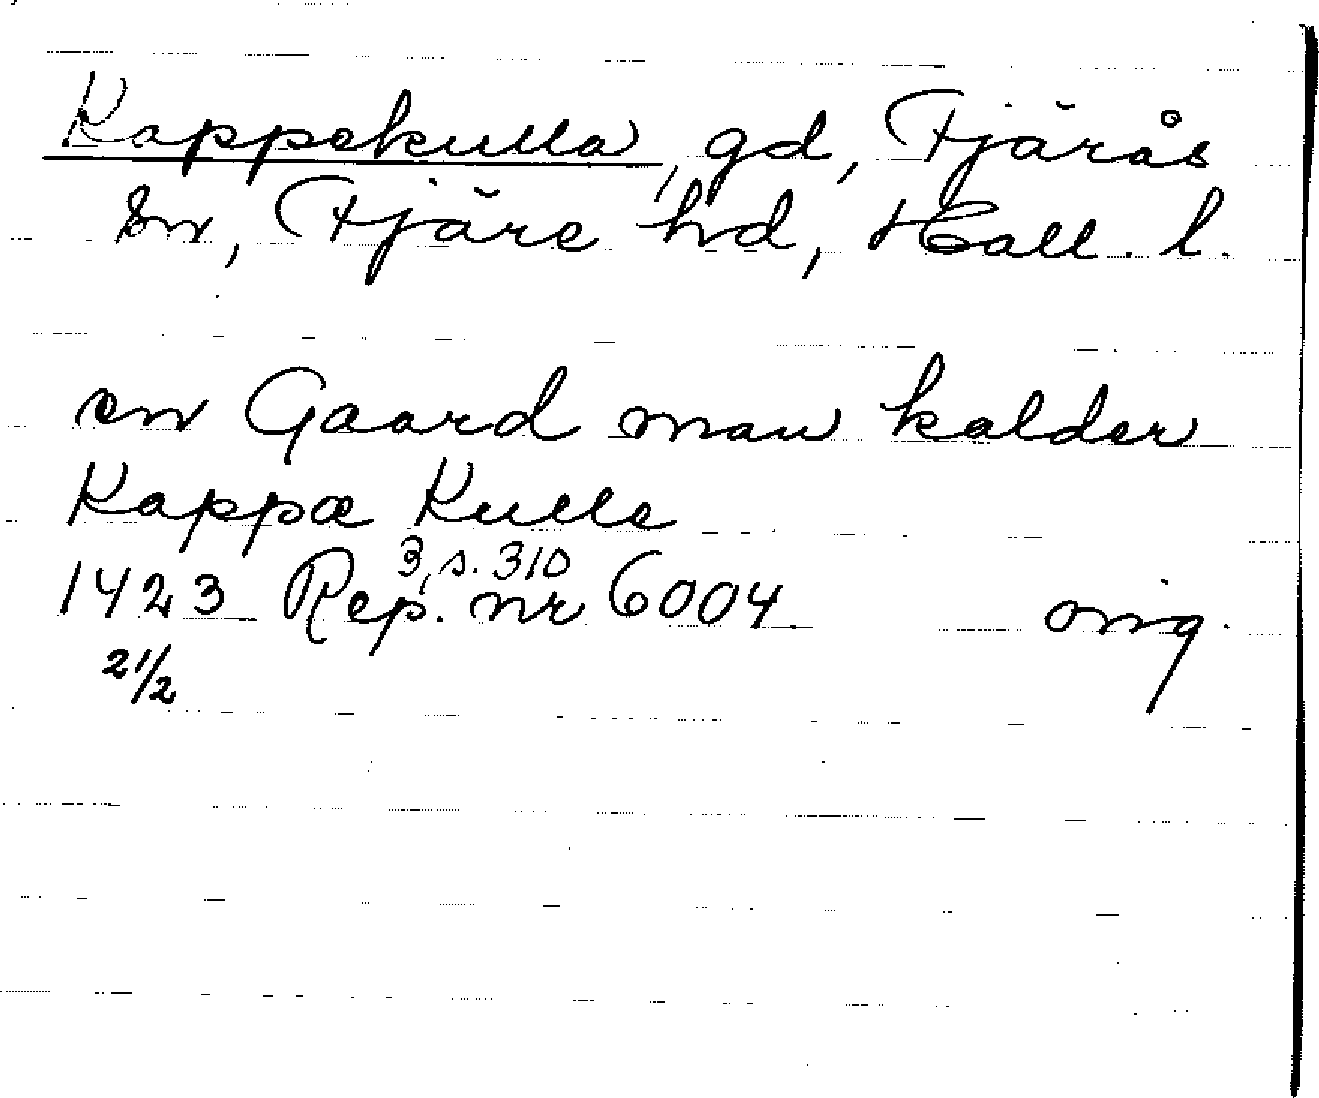 Kappekulla, gd, Fjärås
sn, Fjäre hd, Hall. l.
en Gaard man kalder
Kappæ Kulle
3, s. 310
1423 Rep. nr 6004 orig.
21/2